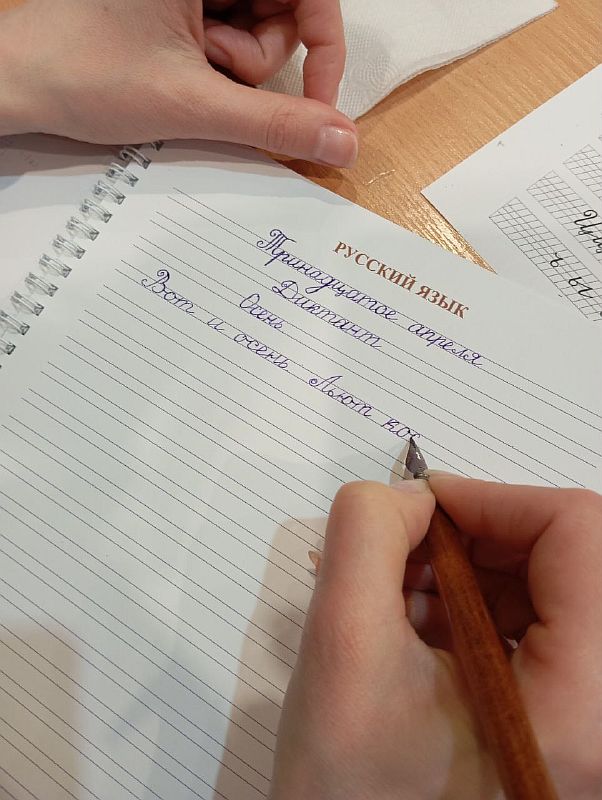 РУССКИЙ ЯЗЫК
Тринадцатое апреля
Диктант
Осень
Вот и осень Льют кос